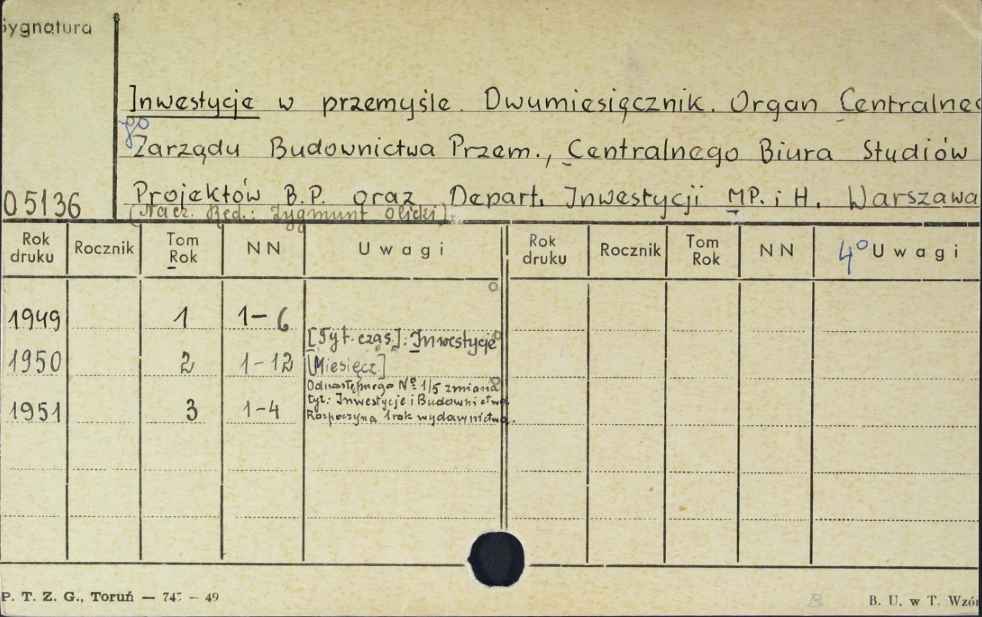 Sygnatura
Inwestycje w przemyśle. Dwumiesięcznik. Organ Centralne
go
Zarządu Budownictwa Przem., Centralnego Biura Studiów
05136 Projektów B.P. oraz Depart. Inwestycji MP. i H. Warszawa
(Nacz. Red.: Zygmunt Olicki).
Rok druku Rocznik Tom Rok NN Uwagi Rok druku Rocznik Tom Rok NN 4° Uwagi
1949 1 1-6
[Tyt. czas.]: Inwestycje
1950 2 1-12 [Miesięcz.]
Od następnego Nº 1/5 zmiana
tyt.: Inwestycje i Budownictwo
1951 3 1-4 Rozpoczyna 1 rok wydawnictwa.
P. T. Z. G., Toruń — 747 — 49 B. U. w T. Wzór